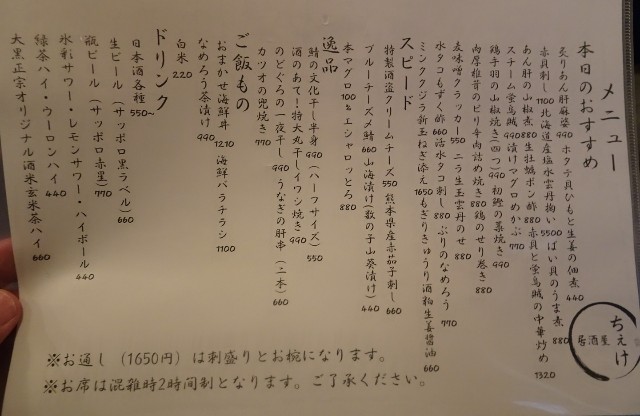 メニュー
本日のおすすめ
炙りあん肝麻婆 990 ホタテ貝ひもと生姜の佃煮 440
赤貝刺し 1100 北海道産塩水雲丹掬い 5500 ばい貝のうま煮 880
あん肝の山椒煮 880 生牡蠣ポン酢 880 赤貝と蛍烏賊の中華炒め 1320
スチーム蛍烏賊 990 漬けマグロめかぶ 770
鶏手羽の山椒焼き(四つ) 990 初鰹の藁焼き 990
肉厚椎茸のピリ辛肉詰め焼き 880 鶏のせり巻き 880
麦味噌クラッカー 550 ニラ生玉雲丹のせ 880
水タコもずく酢 660 活水タコ刺し 880 ぶりのなめろう 770
ミンククジラ新玉ねぎ添え 1650 もぎりきゅうり酒粕生姜醤油 660
スピード
特製酒盗クリームチーズ 550 熊本県産赤茄子刺し 660
ブルーチーズ〆鯖 660 山海漬け(数の子山葵漬け) 440
本マグロ100%エシャロッとろ 880
逸品
鯖の文化干し半身 990 (ハーフサイズ) 550
酒のあて!特大丸干しイワシ焼き 990
のどぐろの一夜干し 990 うなぎの肝串(二本) 660
カツオの兜焼き 770
ご飯もの
おまかせ海鮮丼 1210 海鮮バラチラシ 1100
なめろう茶漬け 990
白米 220
ドリンク
日本酒各種 550~
生ビール(サッポロ黒ラベル) 660
瓶ビール(サッポロ赤星) 770
氷彩サワー・レモンサワー・ハイボール 440
緑茶ハイ・ウーロンハイ 440
大黒正宗オリジナル酒米玄米茶ハイ 660
居酒屋
ちぇけ
※お通し(1650円)は刺盛りとお椀になります。
※お席は混雑時2時間制となります。ご了承ください。